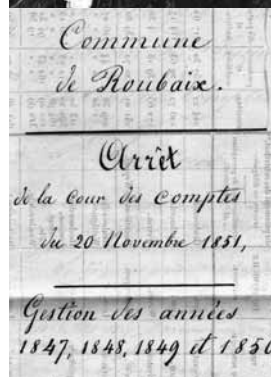 Commune
de Roubaix.
Arrêt
de la Cour des Comptes
du 20 Novembre 1851,
Gestion des années
1847, 1848, 1849 et 1850